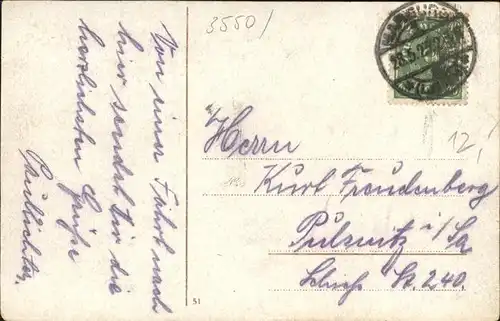 3550/
Von einer Fahrt nach
hier sendet dir die
herzlichsten Grüße
12,-
Herrn
Kurt Freudenberg
Pulsnitz i/Sa
Schließf. 240.
51